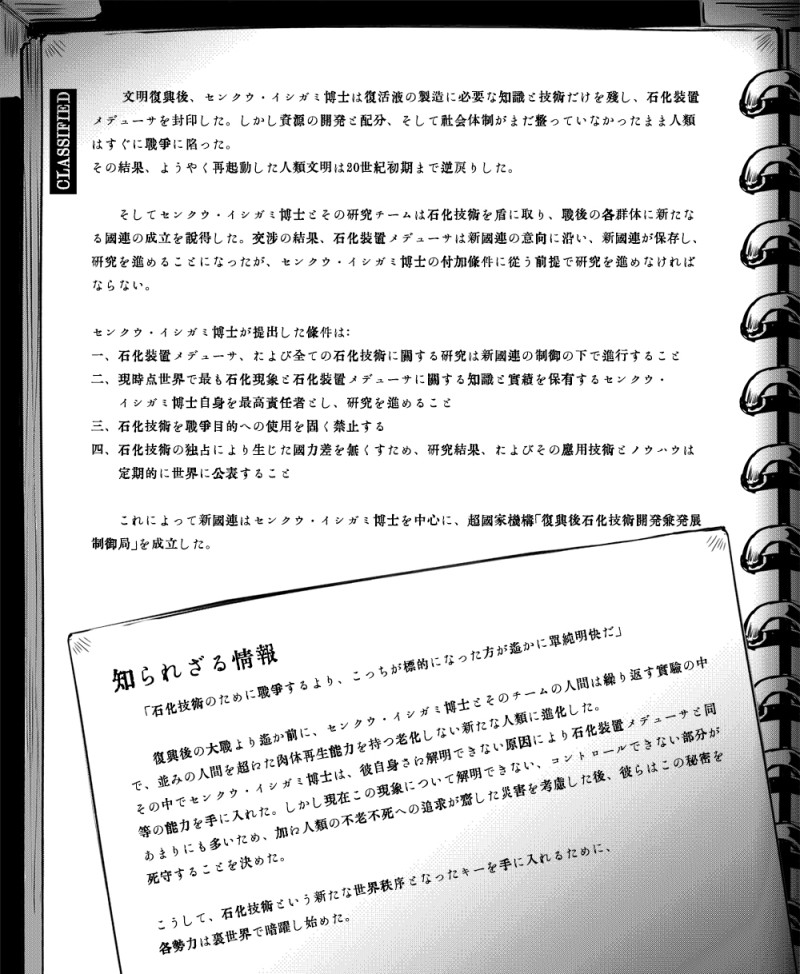 CLASSIFIED
文明復興後、センクウ・イシガミ博士は復活液の製造に必要な知識と技術だけを殘し、石化裝置
メデューサを封印した。しかし資源の開発と配分、そして社会体制がまだ整っていなかったまま人類
はすぐに戰爭に陥った。
その結果、ようやく再起動した人類文明は20世紀初期まで逆戻りした。
そしてセンクウ・イシガミ博士とその研究チームは石化技術を盾に取り、戰後の各群体に新たな
る國連の成立を說得した。交涉の結果、石化裝置メデューサは新國連の意向に沿い、新國連が保存し、
研究を進めることになったが、センクウ・イシガミ博士の付加條件に從う前提で研究を進めなければ
ならない。
センクウ・イシガミ博士が提出した條件は:
一、石化裝置メデューサ、および全ての石化技術に關する研究は新國連の制御の下で進行すること
二、現時点世界で最も石化現象と石化裝置メデューサに關する知識と實績を保有するセンクウ・
イシガミ博士自身を最高責任者とし、研究を進めること
三、石化技術を戰爭目的への使用を固く禁止する
四、石化技術の独占により生じた國力差を無くすため、研究結果、およびその應用技術とノウハウは
定期的に世界に公表すること
これによって新國連はセンクウ・イシガミ博士を中心に、超國家機構「復興後石化技術開発兼発展
制御局」を成立した。
知られざる情報
「石化技術のために戰爭するより、こっちが標的になった方が遙かに單純明快だ」
復興後の大戰より遙か前に、センクウ・イシガミ博士とそのチームの人間は繰り返す實驗の中
で、並みの人間を超えた肉体再生能力を持つ老化しない新たな人類に進化した。
その中でセンクウ・イシガミ博士は、彼自身さえ解明できない原因により石化裝置メデューサと同
等の能力を手に入れた。しかし現在この現象について解明できない、コントロールできない部分が
あまりにも多いため、加え人類の不老不死への追求が齎した災害を考慮した後、彼らはこの秘密を
死守することを決めた。
こうして、石化技術という新たな世界秩序となったキーを手に入れるために、
各勢力は裏世界で暗躍し始めた。